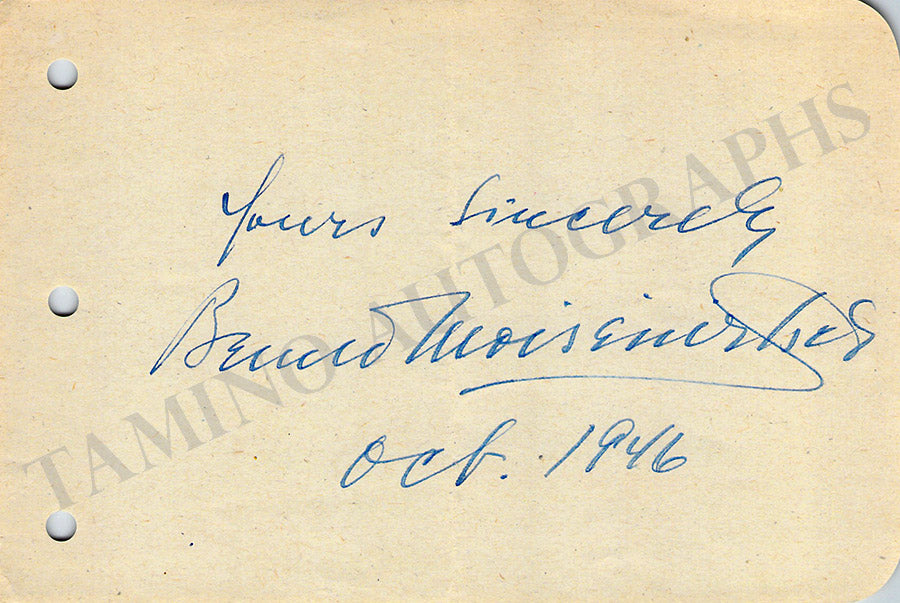 Yours Sincerely
Benno Moiseiwitsch
Oct. 1946
TAMINO AUTOGRAPHS